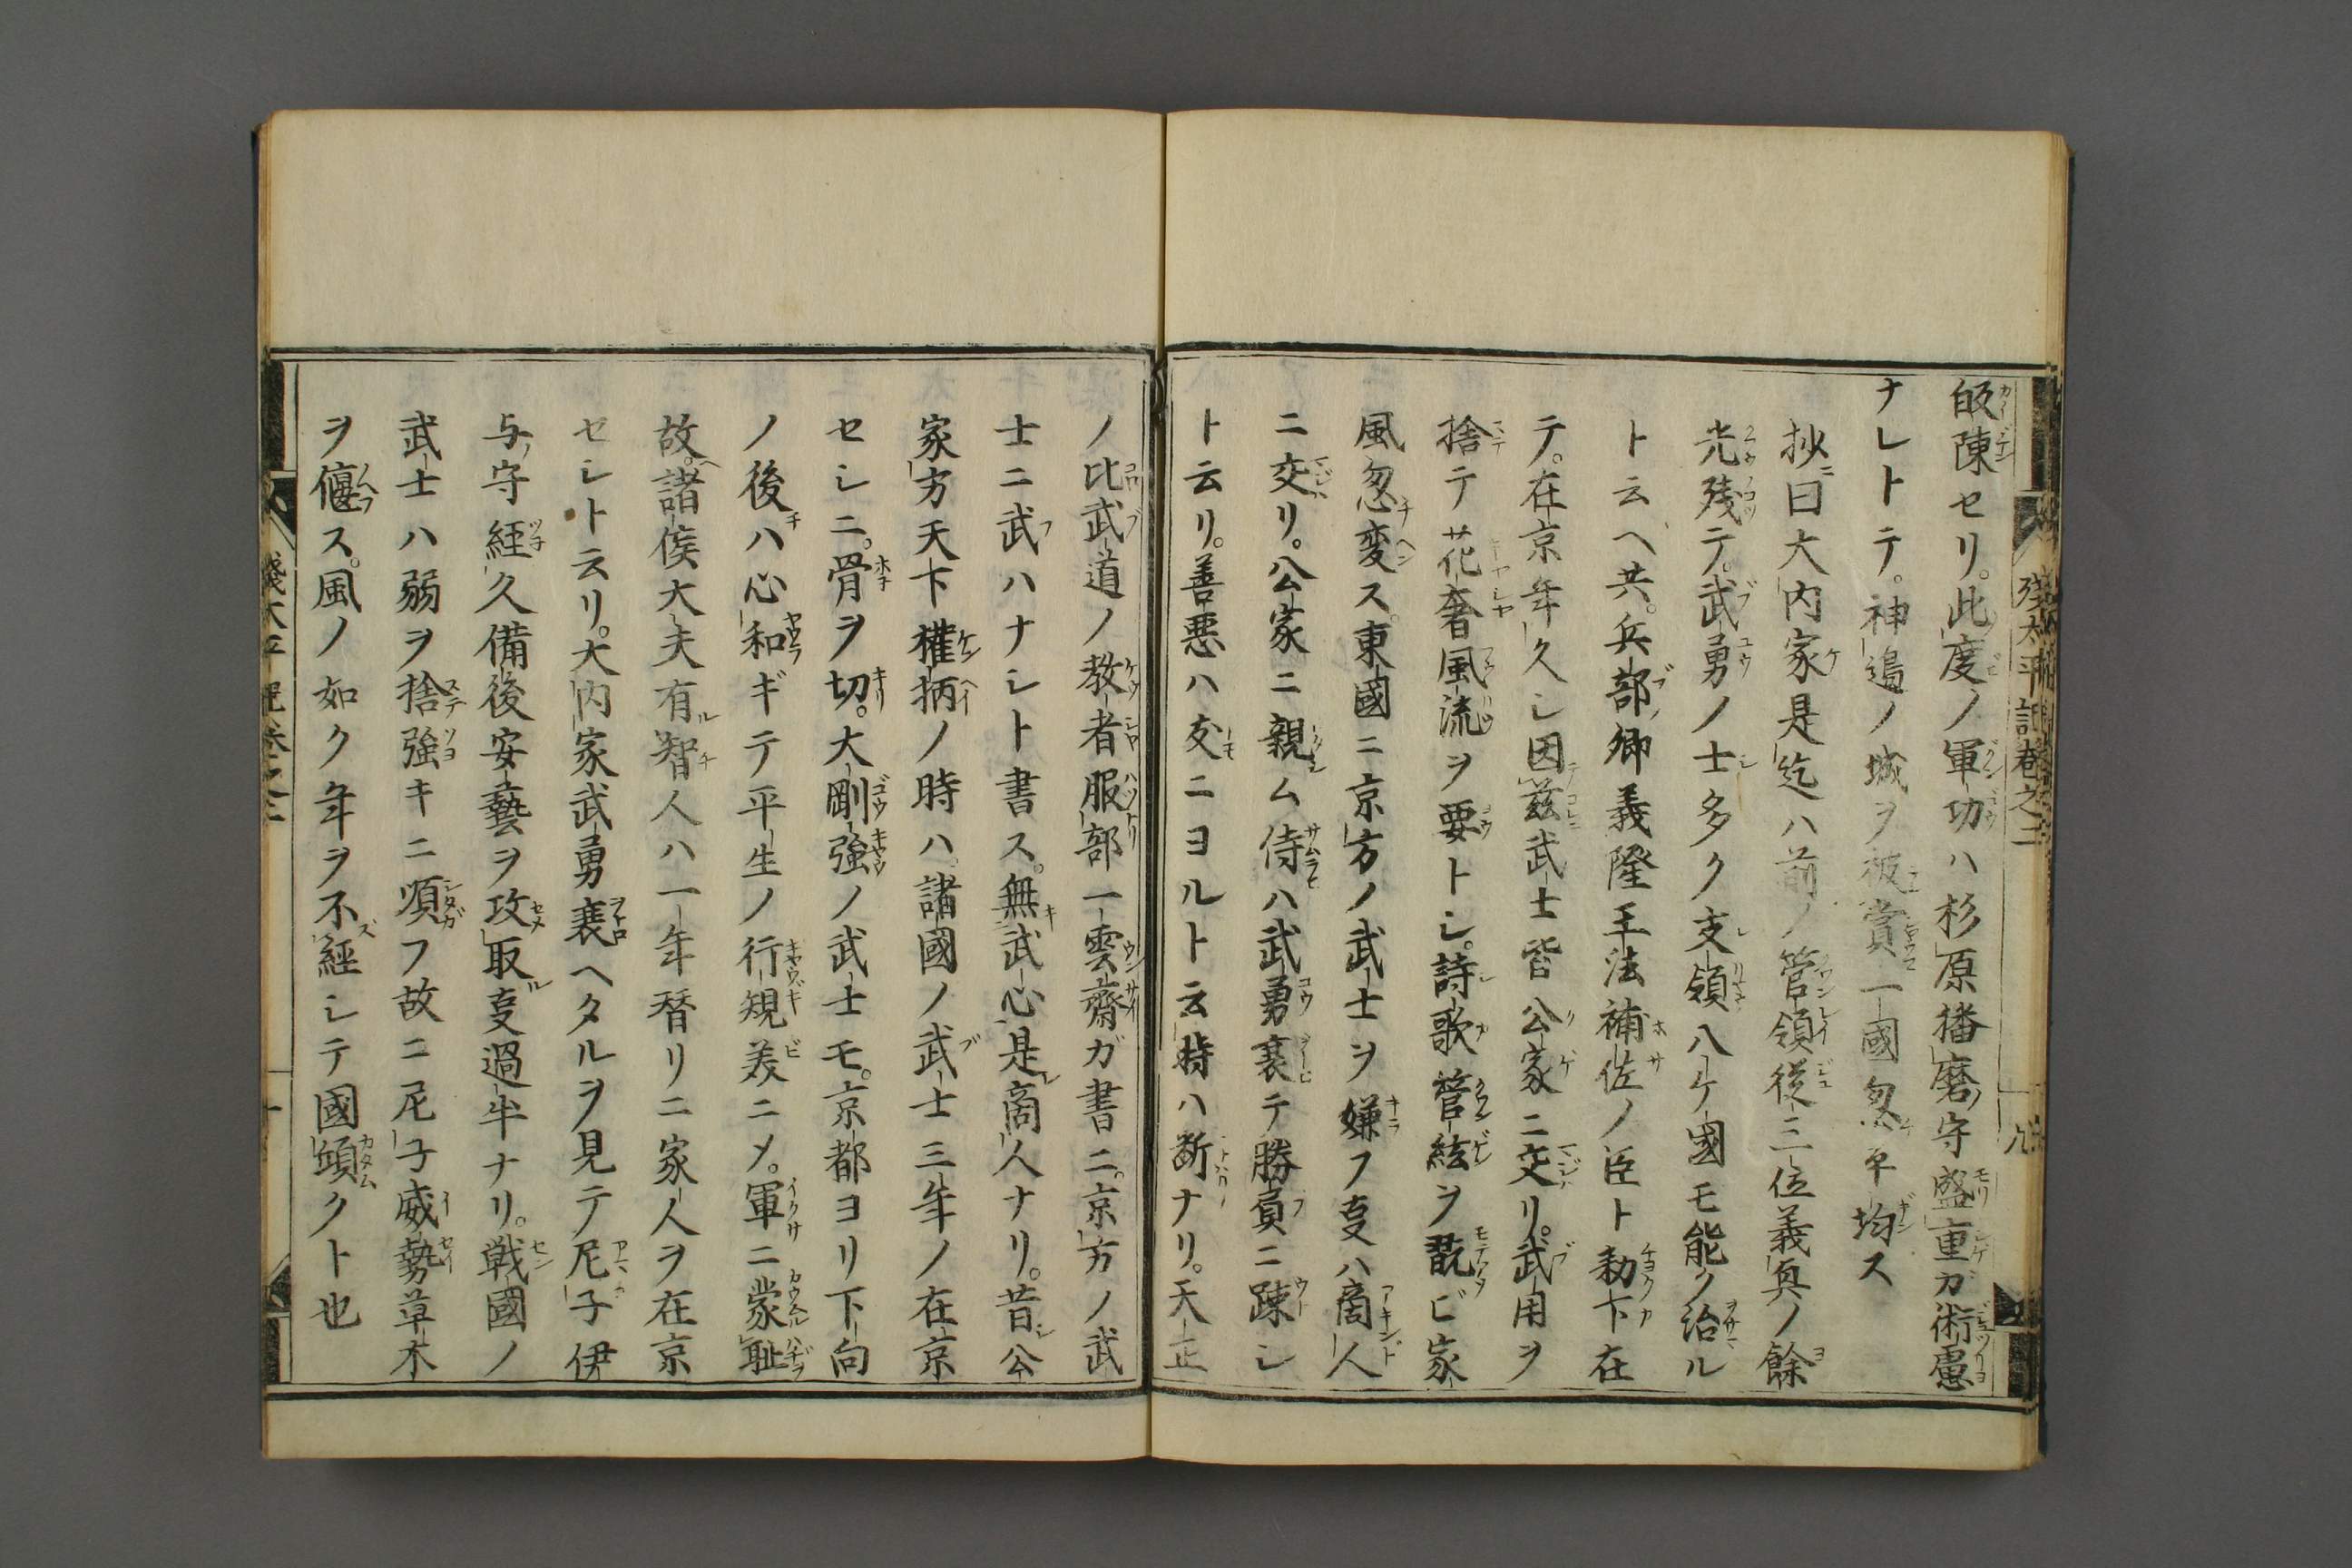 残太平記巻之二
九
皈陳セリ。此度ノ軍功ハ杉原播磨守盛重ガ術慮
ナレトテ。神邉ノ城ヲ被賞一國忽平均ス
抄ニ曰大内家是迄ハ前ノ管領從三位義真ノ餘
光残テ。武勇ノ士多ク支領八ケ國モ能ク治ル
ト云ヘ共。兵部卿義隆王法補佐ノ臣ト勅下在
テ。在京年久シ因茲武士皆公家ニ交リ。武用ヲ
捨テ花奢風流ヲ要トシ。詩歌管絃ヲ翫ビ家
風忽変ス。東國ニ京方ノ武士ヲ嫌フ叓ハ商人
ニ交リ。公家ニ親ム侍ハ武勇衰テ勝負ニ踈シ
ト云リ。善悪ハ友ニヨルト云特ハ断ナリ。天正
ノ比武道ノ教者服部一雲齋ガ書ニ。京方ノ武
士ニ武ハナシト書ス。無武心是商人ナリ。昔公
家方天下權柄ノ時ハ。諸國ノ武士三年ノ在京
セシニ。骨ヲ切。大剛強ノ武士モ。京都ヨリ下向
ノ後ハ心和ギテ平生ノ行規美ニメ。軍ニ蒙恥
故。諸侯大夫有智人ハ一年替リニ家人ヲ在京
セシト云リ。大内家武勇衰ヘタルヲ見テ尼子伊
与守経久備後安藝ヲ攻取叓過半ナリ。戦國ノ
武士ハ弱ヲ捨強キニ順フ故ニ尼子威勢草木
ヲ偃ス。風ノ如ク年ヲ不經シテ國傾クト也
殘太平記巻之二
十